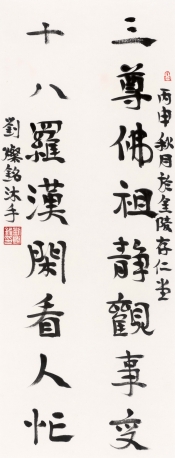 丙申秋月於金陵存仁堂
三尊佛祖静觀事变
十八羅漢閑看人忙
劉燦銘沐手